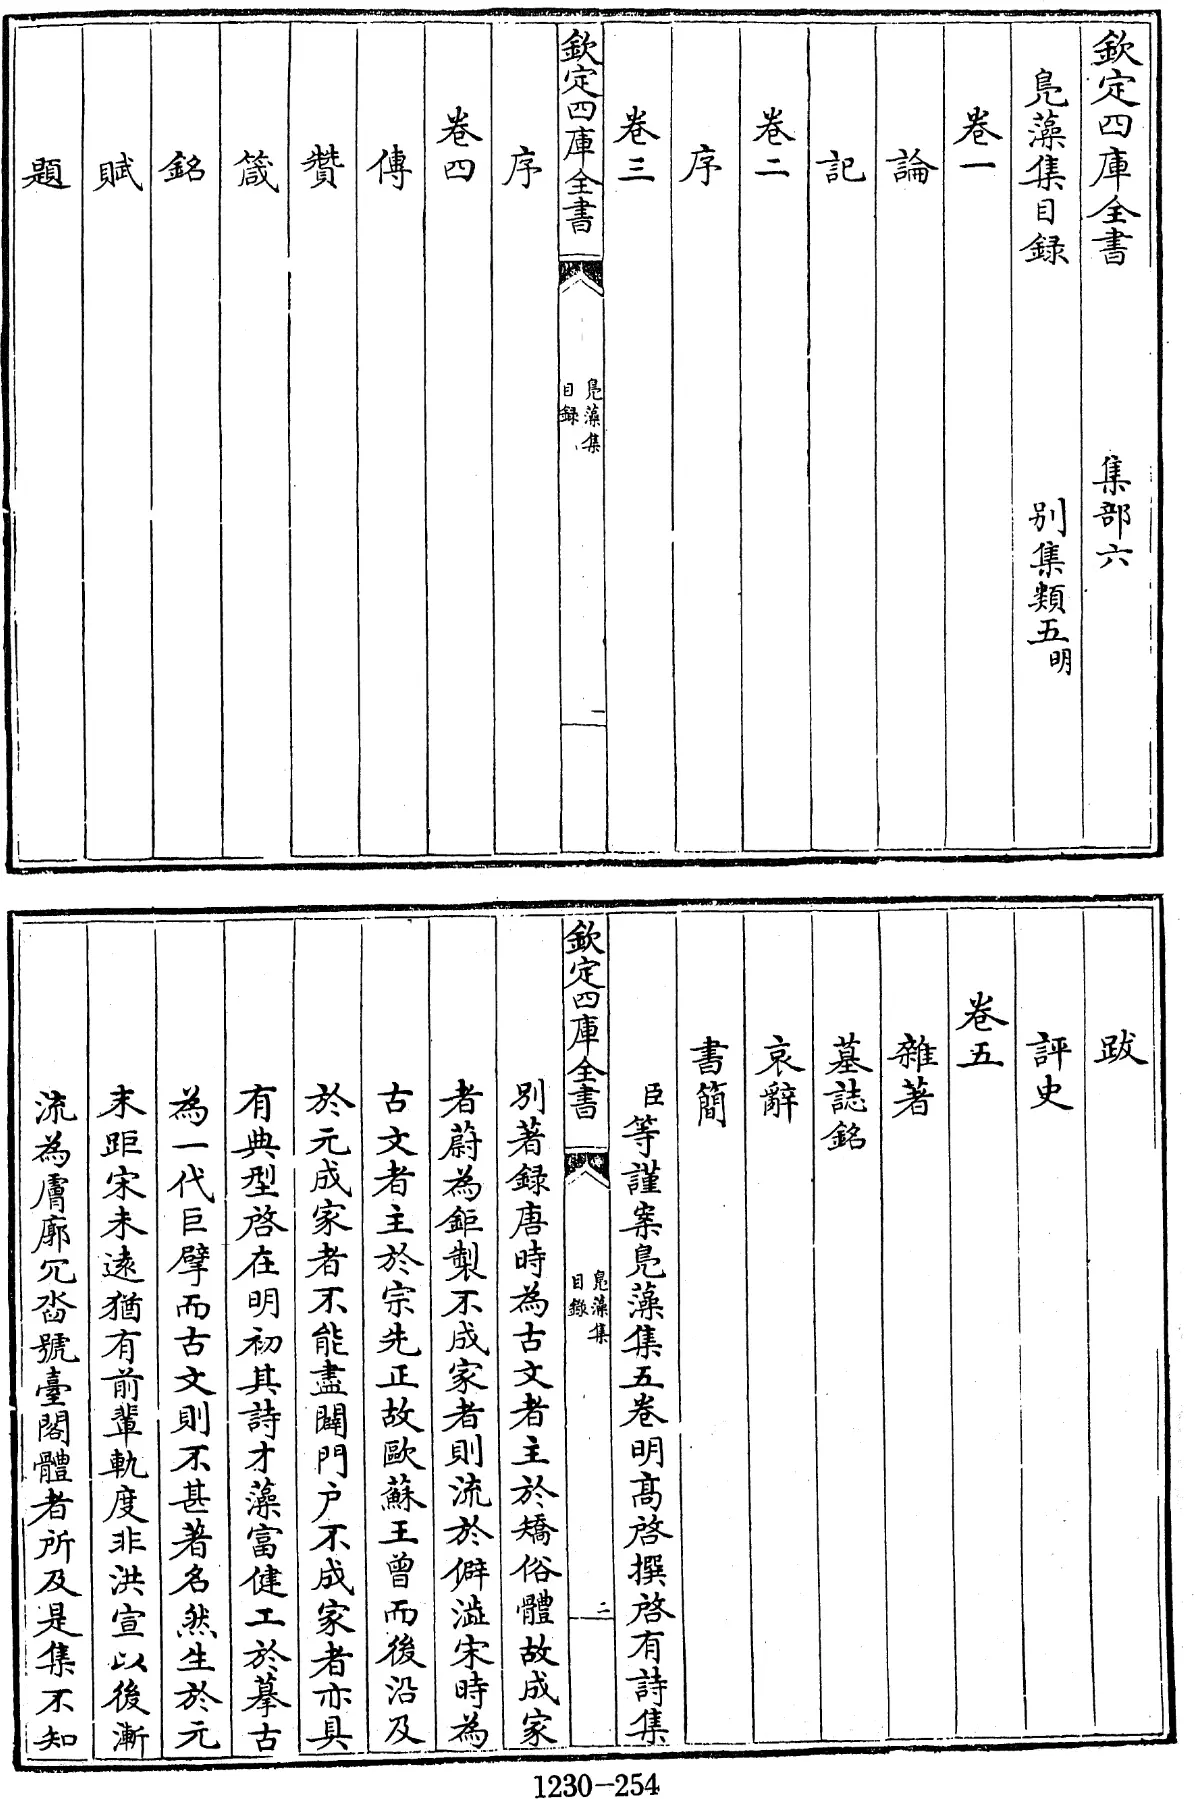 欽定四庫全書　集部六
鳧藻集目録　别集類五明
卷一
論
記
卷二
序
卷三
欽定四庫全書
鳧藻集
目録
一
序
卷四
傳
贊
箴
銘
賦
題
跋
評史
卷五
雜著
墓誌銘
哀辭
書簡
臣等謹案鳧藻集五卷明髙啓撰啓有詩集
欽定四庫全書
鳧藻集
目録
二
别著録唐時為古文者主於矯俗體故成家
者蔚為鉅製不成家者則流於僻澁宋時為
古文者主於宗先正故歐蘇王曾而後沿及
於元成家者不能盡闢門户不成家者亦具
有典型啓在明初其詩才藻富健工於摹古
為一代巨擘而古文則不甚著名然生於元
末距宋未遠猶有前輩軌度非洪宣以後漸
流為膚廓冗沓號臺閣體者所及是集不知
1230-254